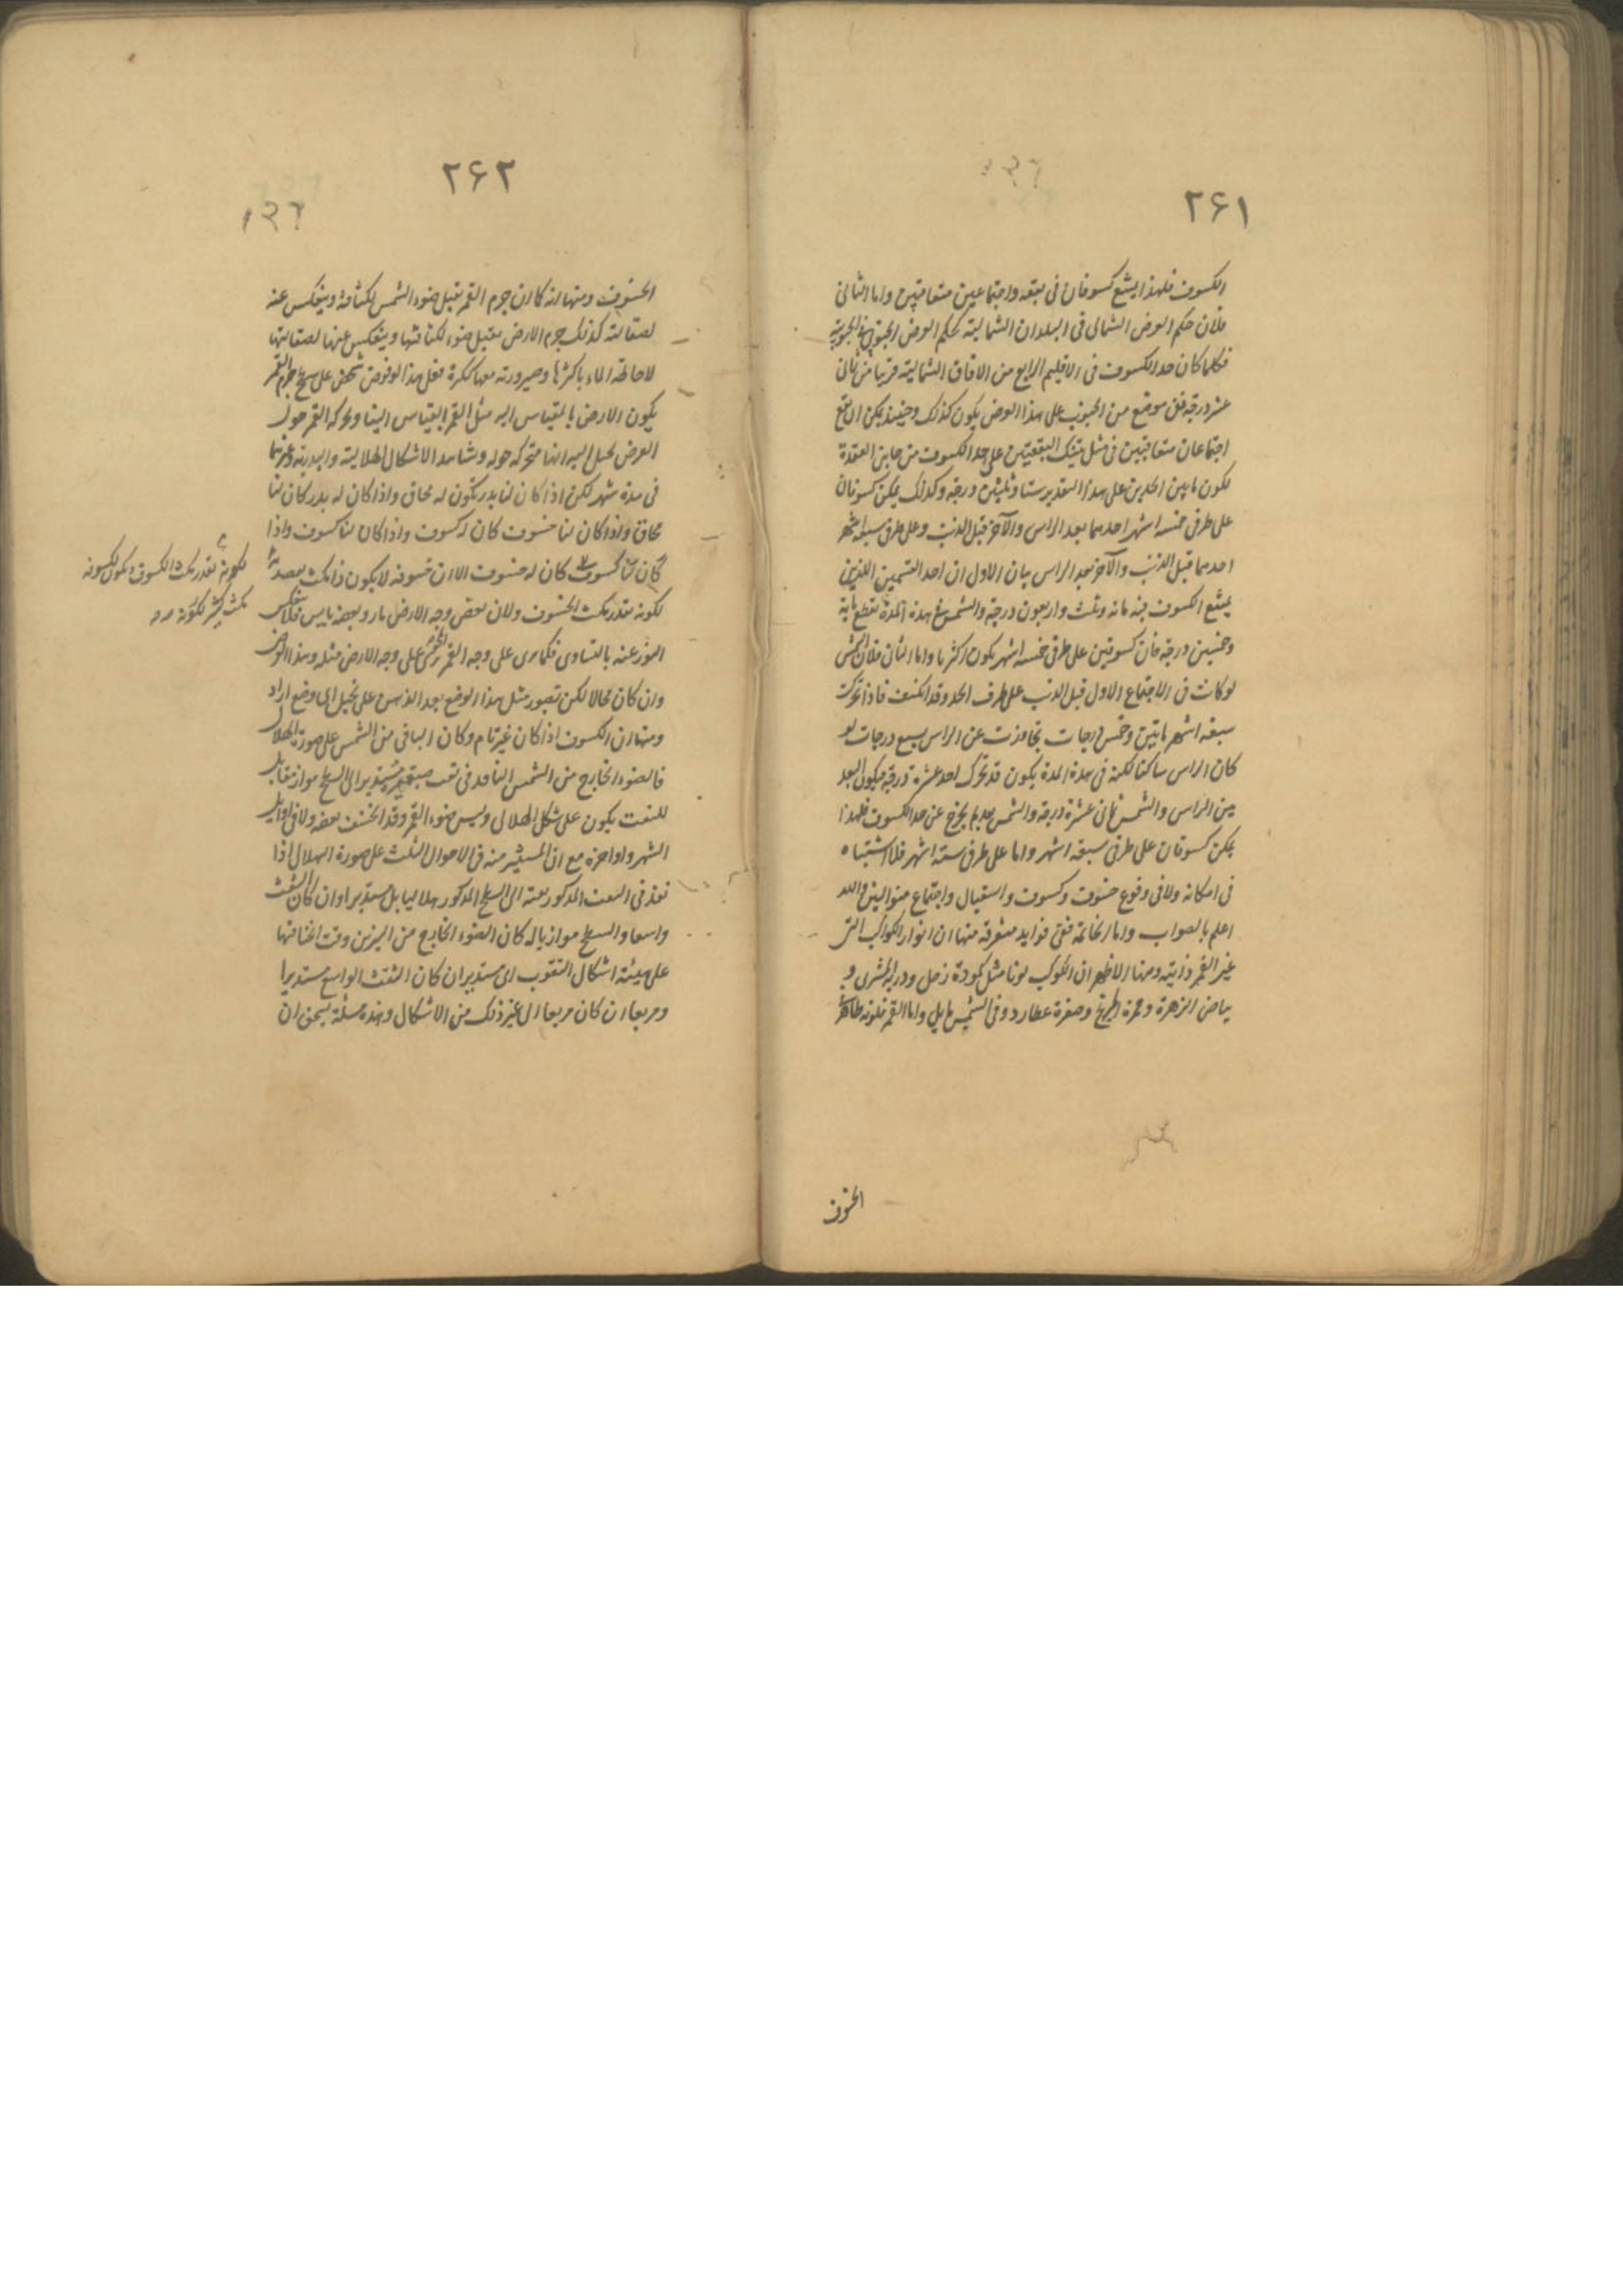 ٢۶١
الكسوف فلهذا يمتنع كسوفان فى بقعه واجتماعين متعاقبين واما الثانى
فلان حكم العرض الشمالى فى البلدان الشمالية كحكم العرض الجنوبى فى الجنوبية
فكلما كان حد الكسوف فى الاقليم الرابع من الافاق الشمالية قريبا من ثمانى
عشر درجة ففى موضع من الجنوب على هذا العرض يكون كذلك وحينئذ يمكن ان يقع
اجتماعان متعاقبين فى مثل تينك البقعتين على حد الكسوف من جانبى العقدة
لكون ما بين الحدين على هذا التقدير ستا وثلثين درجة وكذلك يمكن كسوفان
على طرفى خمسة اشهر احدهما بعد الراس والآخر قبل الذنب وعلى طرفى سبعة اشهر
احدهما قبل الذنب والآخر بعد الراس بيان الاول ان احد القسمين اللذين
يمتنع الكسوف فيه مائه وثلث واربعون درجة والشمس فى هذه المدة تقطع مائة
وخمسين درجة فان كسوفين على طرفى خمسة اشهر يكون اكثرها واما الثانى فلان الشمس
لو كانت فى الاجتماع الاول قبل الذنب على طرف الحد وقد انكسف فاذا تحركت
سبعة اشهر مايتين وخمس درجات تجاوزت عن الراس بسبع درجات لو
كان الراس ساكنا لكنه فى هذة المدة يكون قد تحرك احد عشرة درجة فيكون البعد
بين الراس والشمس ثمانى عشرة درجة والشمس بعد لم يخرج عن حد الكسوف فلهذا
يمكن كسوفان على طرفى سبعة اشهر واما على طرفى ستة اشهر فلا اشتباه
فى امكانه ولا فى وقوع خسوف وكسوف واستقبال واجتماع متواليين والله
اعلم بالصواب واما الخاتمة ففى فوايد متفرقة منها ان انوار الكواكب التى
غير القمر ذاتية ومنها الاظهر ان للكواكب لونا مثل كمودة زحل ودرية المشترى و
بياض الزهرة وحمرة المريخ وصفرة عطارد وفى الشمس مايل واما القمر فلونه ظاهر فى
الخسوف
٢۶٢
الخسوف ومنها انه كما ان جرم القمر يقبل ضوء الشمس لكثافة وينعكس عنه
لصقالته كذلك جرم الارض يقبل ضوء لكثافتها وينعكس عنها لصقالتها
لاحاطة الماء باكثرها وصيرورته معها ككرة فعلى هذا لو فرض شخص على سطح جرم القمر
يكون الارض بالقياس اليه مثل القمر بالقياس الينا ولحركة القمر حول
الارض يخيل اليه انها متحركة حوله وشاهد الاشكال الهلالية والبدرية وغيرها
فى مدة شهر لكن اذا كان لنا بدر تكون له محاق واذا كان له بدر كان لنا
محاق واذا كان لنا خسوف كان له كسوف واذا كان لنا كسوف واذا
كان لنا كسوف كان له خسوف الا ان خسوفه لا يكون ذا مكث يعتد به
لكونه بقدر مكث الخسوف ولان بعض وجه الارض ماء وبعضه يابس فلا ينعكس
النور عنه بالتساوى فكما يرى على وجه القمر المحو يرى على وجه الارض مثله وهذا الفرض
وان كان محالا لكن تصور مثل هذا الوضع يعد الذهن على تخيل اى وضع اراد
ومنها ان الكسوف اذا كان غير تام وكان الباقى من الشمس على صورة الهلال
فالضوء الخارج من الشمس النافذ فى ثقب ضيق مستدير الى السطح مواز مقابل
للثقب يكون على شكل الهلال وليس ضوء القمر وقد انخسف بعضه ولا فى اوايل
الشهر واواخره مع ان المستنير منه فى الاحوال الثلث على صورة الهلال اذا
نفذ فى الثقب المذكور منه الى السطح المذكور هلاليا بل مستديرا وان كان الثقب
واسعا والسطح موازيا له كان الضوء الخارج من النيرين وقت انخسافهما
على هيئة اشكال الثقوب اى مستديرا ان كان الثقب الواسع مستديرا
ومربعا ان كان مربعا الى غير ذلك من الاشكال وهذه مسئلة يستحق ان
لكونه بقدر مكث الكسوف ويكون لكسوفه
مكث كثير لكونه